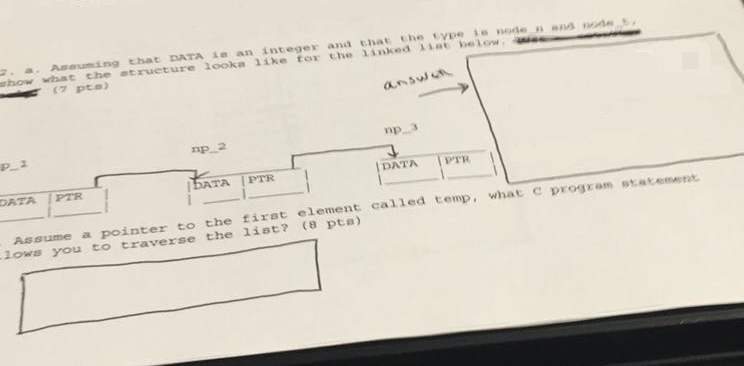 2. a. Assuming that DATA is an integer and that the type is node_n and node_t,
show what the structure looks like for the linked list below.
(7 pts)
answer
np_3
np_2
p_1
DATA PTR
DATA PTR
DATA PTR
Assume a pointer to the first element called temp, what C program statement
lows you to traverse the list? (8 pts)